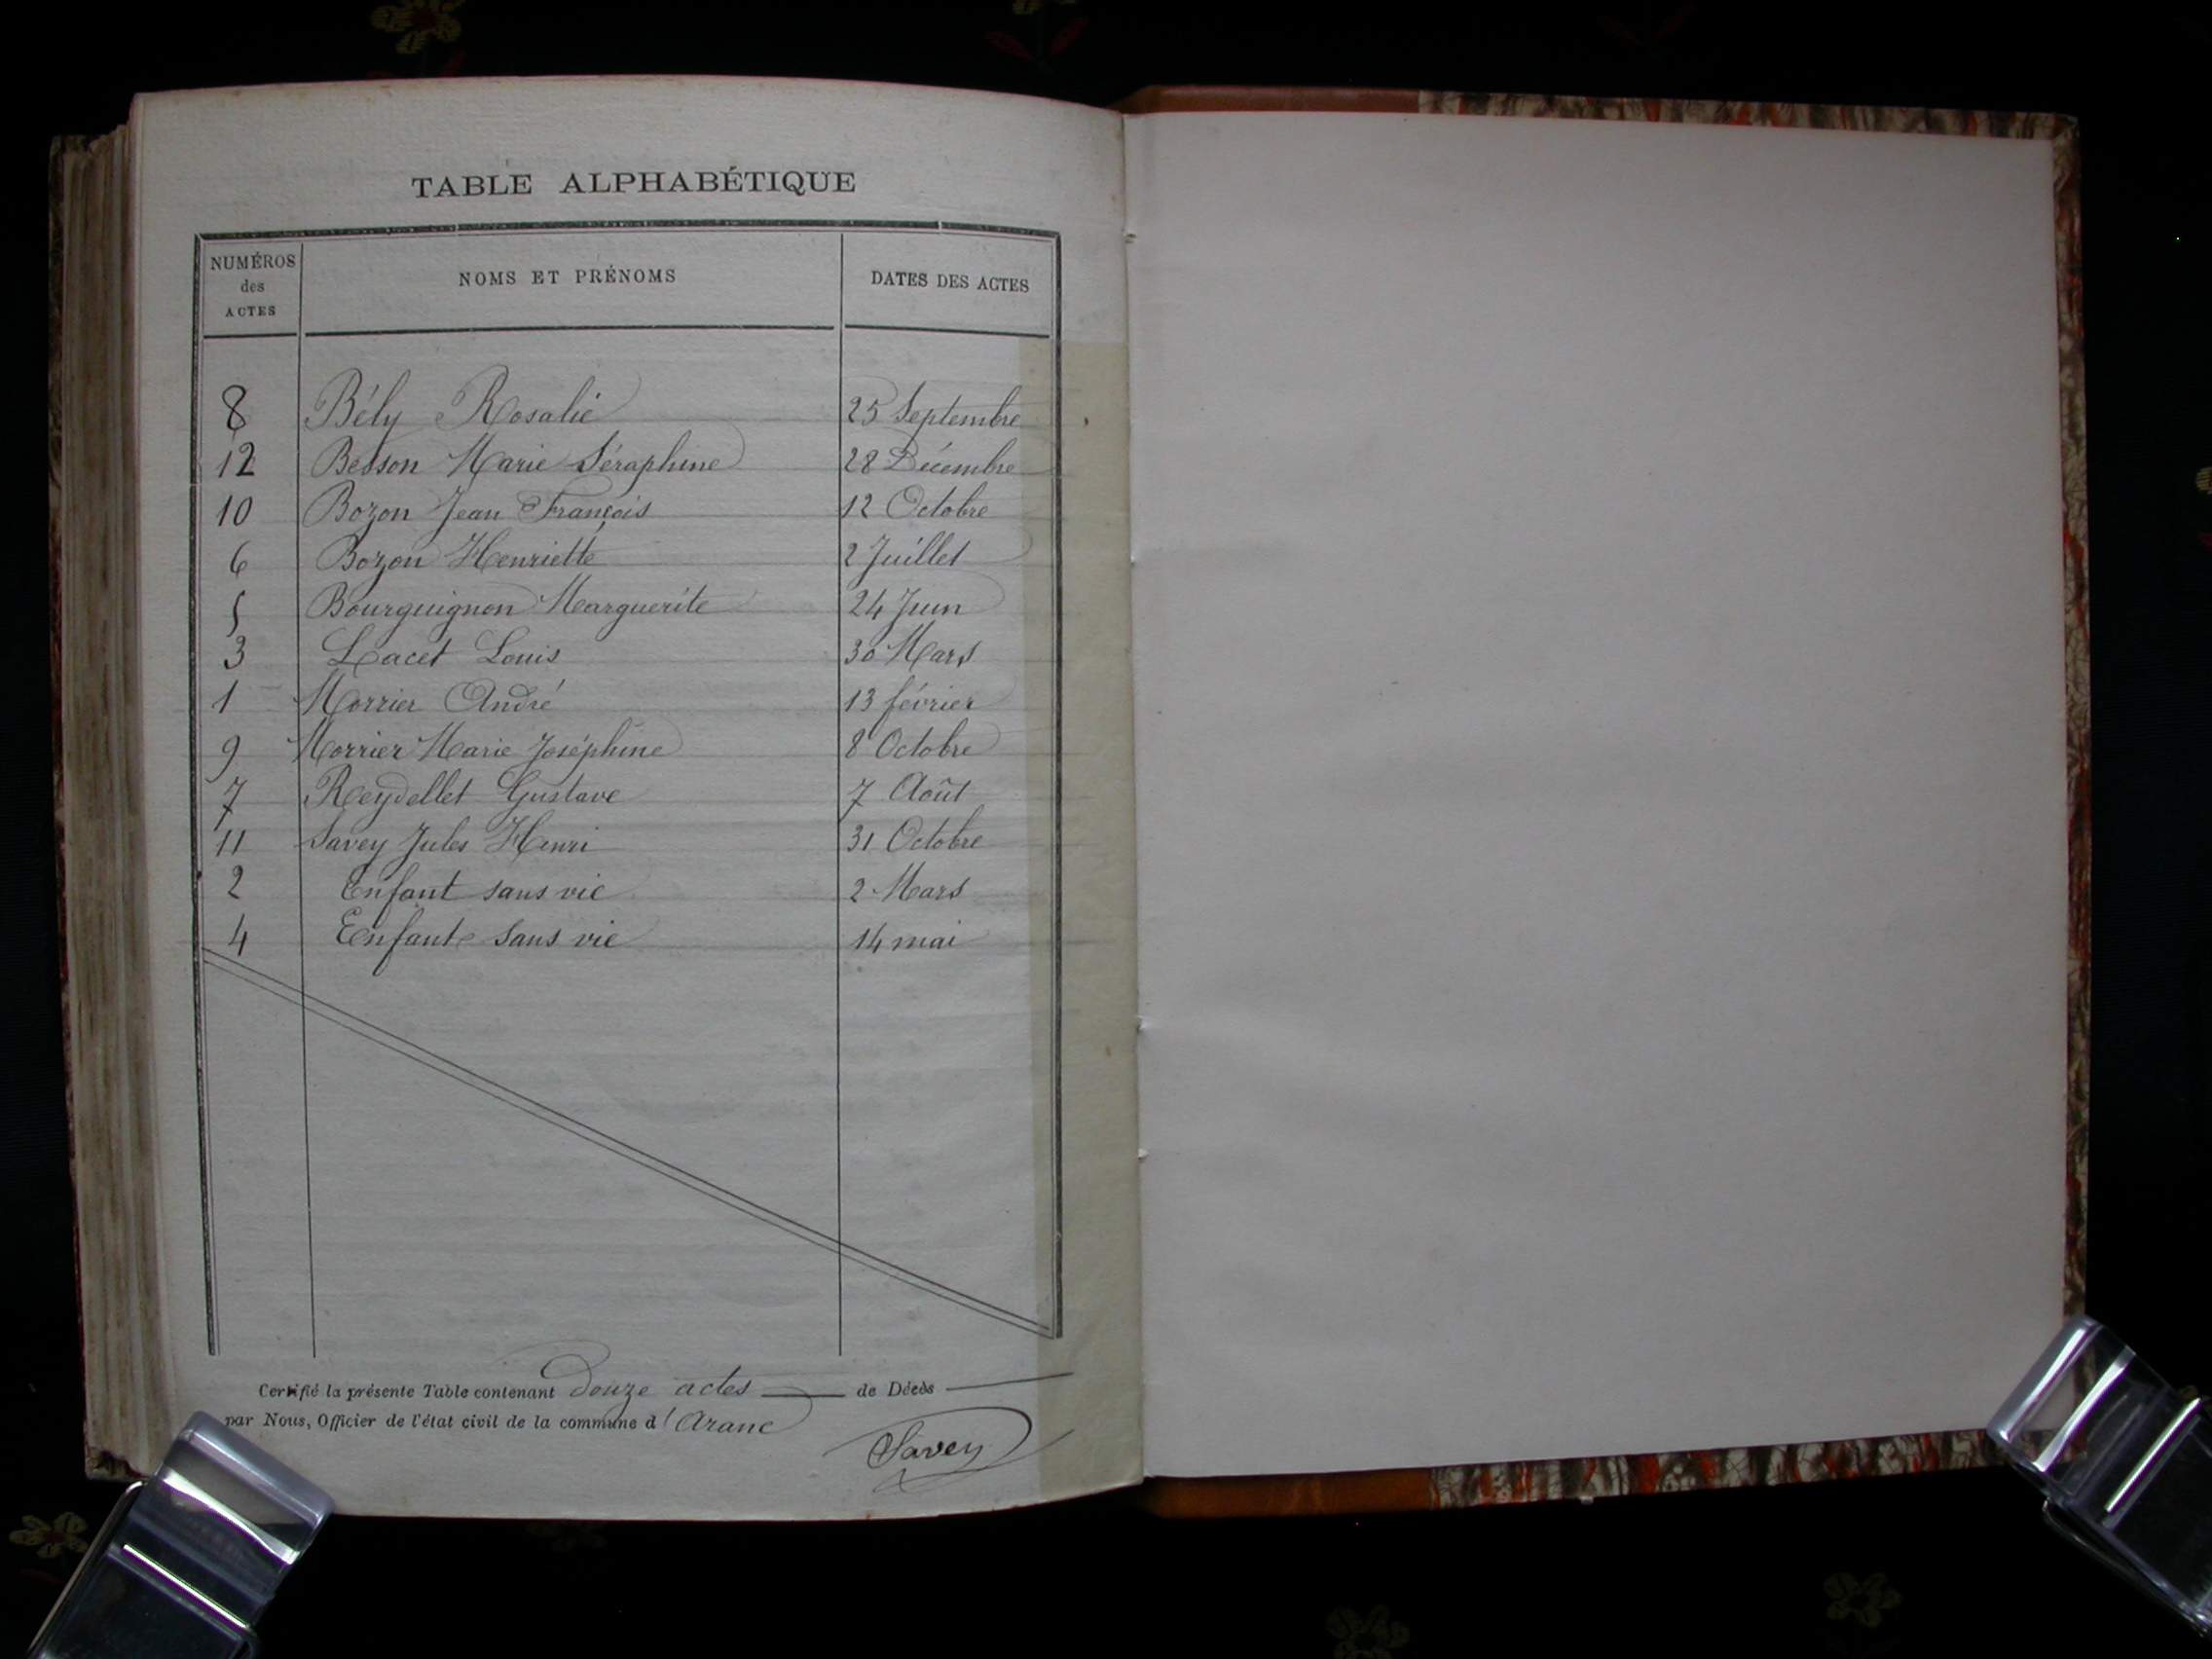 TABLE ALPHABÉTIQUE
NUMÉROS des ACTES NOMS ET PRÉNOMS DATES DES ACTES
8 Bély Rosalie 25 Septembre
12 Besson Marie Séraphine 28 Décembre
10 Bozon Jean François 12 Octobre
6 Bozon Henriette 2 Juillet
5 Bourguignon Marguerite 24 Juin
3 Lacet Louis 30 Mars
1 Morrier André 13 février
9 Morrier Marie Joséphine 8 Octobre
7 Reydellet Gustave 7 Août
11 Savey Jules Henri 31 Octobre
2 Enfant sans vie 2 Mars
4 Enfant sans vie 14 mai
Certifié la présente Table contenant Douze actes de Décès
par Nous, Officier de l'état civil de la commune d'Aranc
Savey